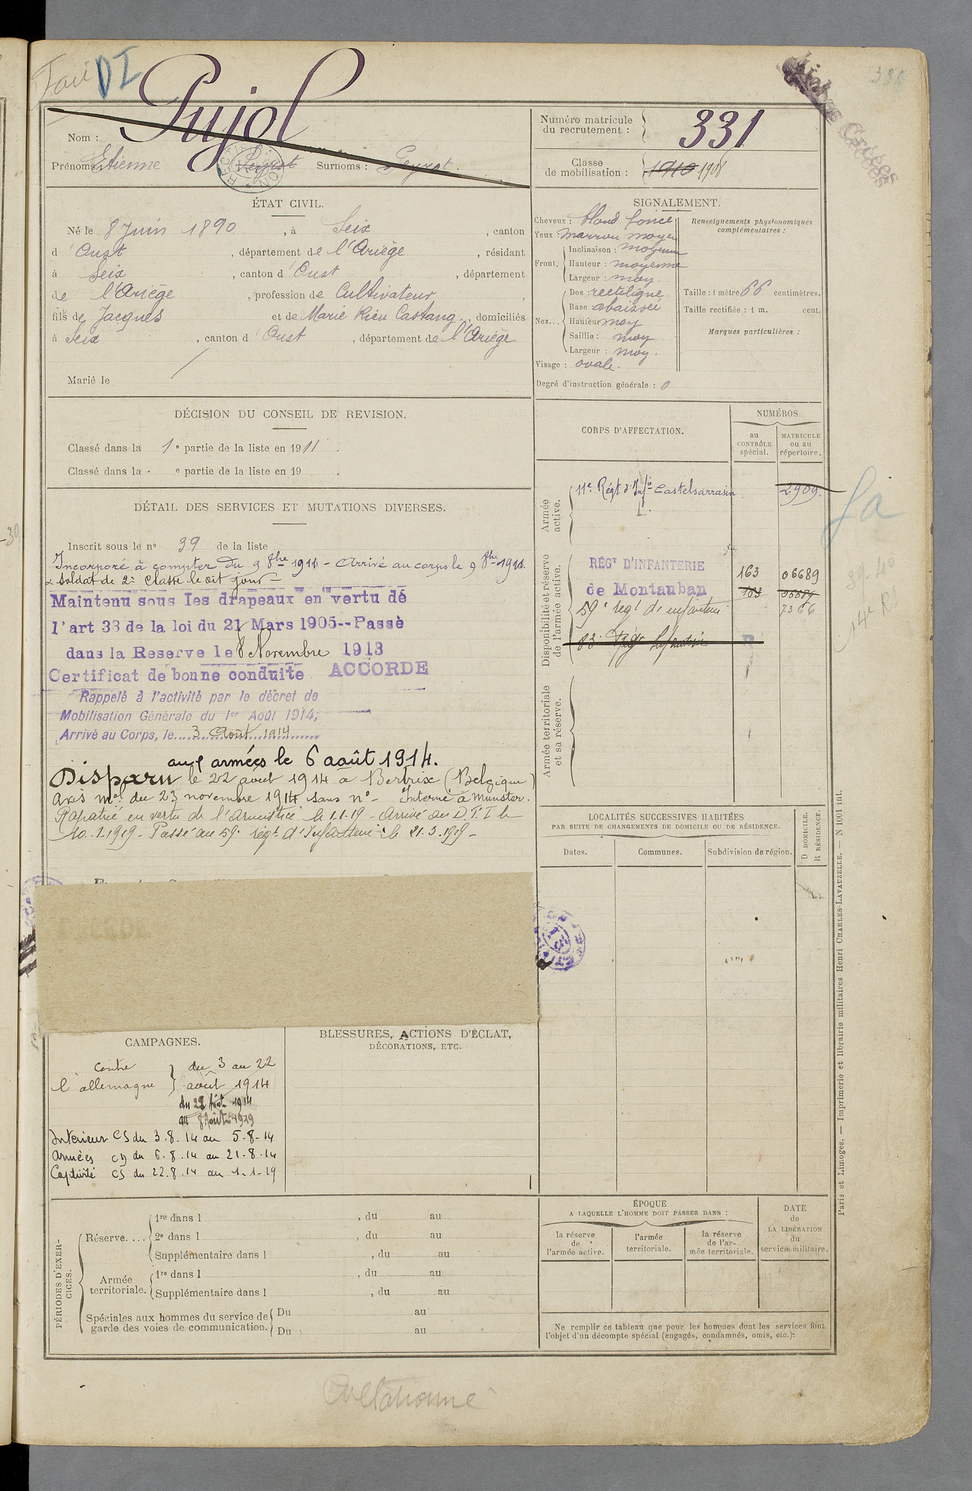 DI
Pujol
Nom :
Prénoms : Etienne Peyrot Surnoms : Peyrot.
Numéro matricule du recrutement : 331
Classe de mobilisation : 1910 1908
ÉTAT CIVIL.
Né le 8 Juin 1890, à Seix, canton
d'Oust, département de l'Ariège, résidant
à Seix, canton d'Oust, département
de l'Ariège, profession de Cultivateur,
fils de Jacques et de Marie Rieu Castang, domiciliés
à Seix, canton d'Oust, département de l'Ariège
Marié le
SIGNALEMENT.
Cheveux : blond foncé
Yeux : marron moyen
Front, Inclinaison : moyenne
Hauteur : moyenne
Largeur : moy
Nez... Dos : rectiligne
Base abaissée
Hauteur moy
Saillie : moy
Largeur : moy.
Visage : ovale.
Degré d'instruction générale : 0
Renseignements physionomiques complémentaires :
Taille : 1 mètre 66 centimètres.
Taille rectifiée : 1 m. cent.
Marques particulières :
DÉCISION DU CONSEIL DE REVISION.
Classé dans la 1e partie de la liste en 1911.
Classé dans la e partie de la liste en 19 .
DÉTAIL DES SERVICES ET MUTATIONS DIVERSES.
Inscrit sous le n° 39 de la liste
Incorporé à compter du 9 8bre 1911 - Arrivé au corps le 9 8bre 1911.
& soldat de 2e classe le dit jour
Maintenu sous les drapeaux en vertu de
l'art 33 de la loi du 21 Mars 1905--Passé
dans la Reserve le 8 Novembre 1913
Certificat de bonne conduite ACCORDE
Rappelé à l'activité par le décret de
Mobilisation Générale du 1er Août 1914,
Arrivé au Corps, le 3 Août 1914
aux armées le 6 août 1914.
Disparu le 22 août 1914 à Bertrix (Belgique)
avis mel du 23 novembre 1914 sans n° - Interné à Munster.
Rapatrié en vertu de l'Armistice le 1.1.19 - Arrivé au D.T.I le
10.2.1919 - Passé au 59e régt d'Infanterie le 21.3.1919 -
CORPS D'AFFECTATION.
NUMÉROS
au CONTRÔLE spécial.
MATRICULE ou au répertoire.
Armée active.
11e Régt d'Infie Castelsarrasin 2909.
Disponibilité et réserve de l'armée active.
RÉGt D'INFANTERIE
de Montauban 163 06689
59e régt d'infanterie 7366
83e
Armée territoriale et sa réserve.
LOCALITÉS SUCCESSIVES HABITÉES
PAR SUITE DE CHANGEMENTS DE DOMICILE OU DE RÉSIDENCE.
Dates. Communes. Subdivision de région.
D DOMICILE.
R RÉSIDENCE.
CAMPAGNES.
contre l'allemagne du 3 au 22 août 1914
Intérieur CS du 3.8.14 au 5.8.14
Armées CD du 6.8.14 au 21.8.14
Captivité CS du 22.8.14 au 1.1.19
BLESSURES, ACTIONS D'ÉCLAT,
DÉCORATIONS, ETC.
PÉRIODES D'EXERCICES.
Réserve.... 1re dans l , du au
2e dans l , du au
Supplémentaire dans l , du au
Armée territoriale. 1re dans l , du au
Supplémentaire dans l , du au
Spéciales aux hommes du service de garde des voies de communication. Du au
Du au
ÉPOQUE
A LAQUELLE L'HOMME DOIT PASSER DANS :
la réserve de l'armée active.
l'armée territoriale.
la réserve de l'armée territoriale.
DATE de LA LIBÉRATION du service militaire.
Ne remplir ce tableau que pour les hommes dont les services font
l'objet d'un décompte spécial (engagés, condamnés, omis, etc.).
Paris et Limoges. — Imprimerie et librairie militaires Henri CHARLES-LAVAUZELLE. — N 1001 int.